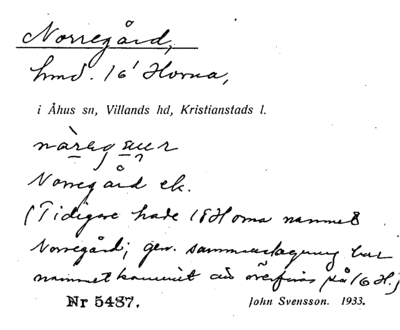 Norregård,
hmd. 16¹ Horna,
i Åhus sn, Villands hd, Kristianstads l.
Norregård ek.
(Tidigare hade 18 Horna namnet
Norregård; gen. sammanslagning har
namnet kommit att överföras på 16 H.)
Nr 5487. John Svensson. 1933.